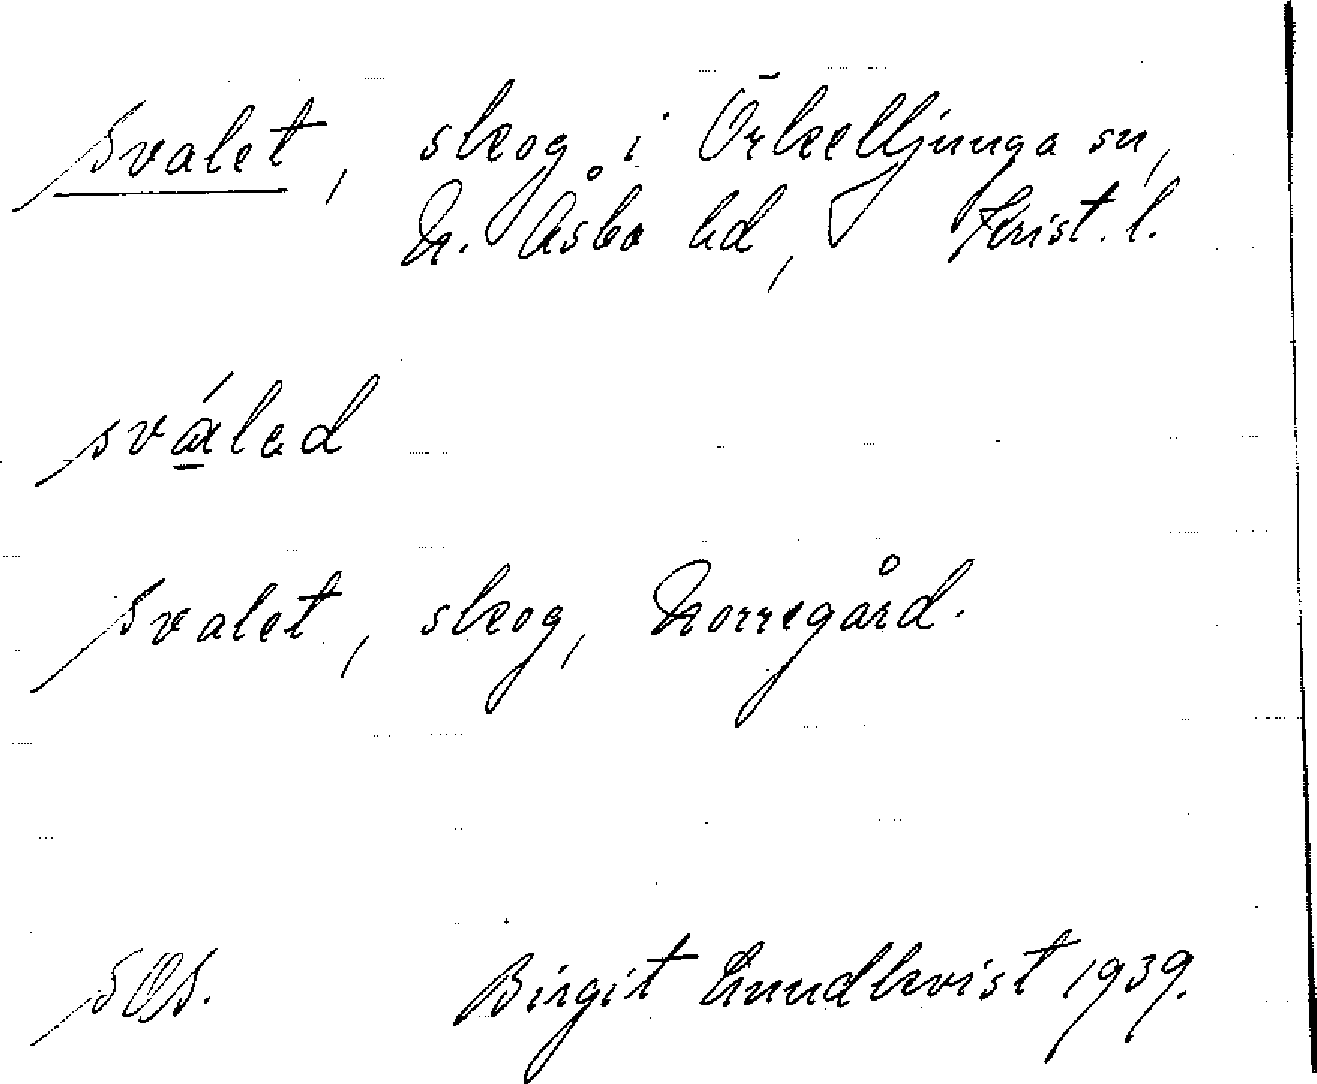 Svalet, skog i Örkelljunga sn,
N. Åsbo hd, Krist. l.
sváḻad
Svalet, skog, Norregård.
SOS. Birgit Lundkvist 1939.